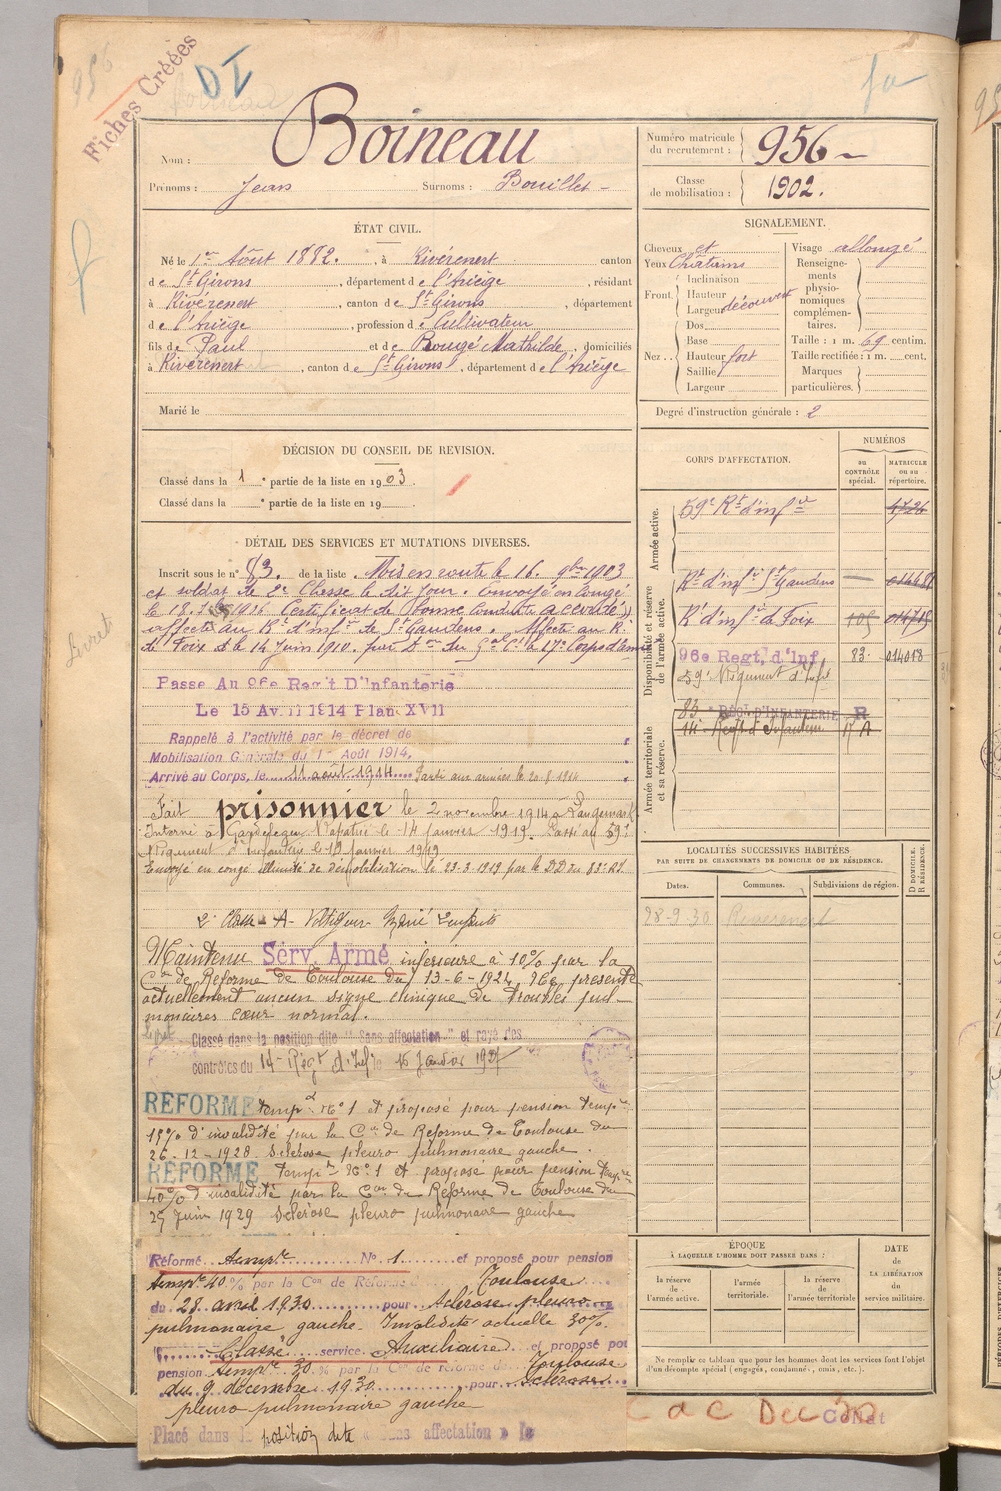 956
Fiches Créées
DI
fa
Nom : Boineau
Prénoms : Jean Surnoms : Bouillet -
Numéro matricule du recrutement : 956 -
Classe de mobilisation : 1902.
ÉTAT CIVIL.
Né le 1er Août 1882. , à Rivérenert canton
de St Girons , département de l'Ariège , résidant
à Rivérenert , canton de St Girons , département
de l'Ariège , profession de Cultivateur
fils de Paul et de Bougé Mathilde , domiciliés
à Rivérenert , canton de St Girons , département de l'Ariège
Marié le
SIGNALEMENT.
Cheveux et
Yeux Châtains
Front. Inclinaison
Hauteur
Largeur découvert
Nez .. Dos
Base
Hauteur fort
Saillie
Largeur
Visage allongé
Renseignements physionomiques complémentaires.
Taille : 1 m. 69 centim.
Taille rectifiée : 1 m. cent.
Marques particulières.
Degré d'instruction générale : 2
DÉCISION DU CONSEIL DE REVISION.
Classé dans la 1 e partie de la liste en 1903.
Classé dans la e partie de la liste en 19 .
CORPS D'AFFECTATION.
NUMÉROS
au CONTRÔLE spécial.
MATRICULE ou au répertoire.
Armée active.
59e Rt d'infie 4726
Disponibilité et réserve de l'armée active.
Rt d'infie St Gaudens —
Rt d'infie de Foix 105 014715
96e Regt, d'Inf 83. 014018
59e Régiment d'Infie
Armée territoriale et sa réserve.
83 e RÉGt D'INFANTERIE R
14e Regt d'Infanterie R A
DÉTAIL DES SERVICES ET MUTATIONS DIVERSES.
Inscrit sous le n° 83. de la liste . Mis en route le 16. 9bre 1903
et soldat de 2e Classe le dit jour. Envoyé en congé
le 18. Certificat de bonne conduite accordé
affecté au Rt d'infie de St Gaudens. Affecté au Rt
de Foix à d. 14 Juin 1910. par Don du Gal Ct le 17e Corps d'armée
Livret
Passé Au 96e Reg't D'Infanterie
Le 15 Avril 1914 Plan XVII
Rappelé à l'activité par le décret de
Mobilisation Générale du 1er Août 1914.
Arrivé au Corps, le 11 août 1914. Parti aux armées le 20.8.1914
Fait prisonnier le 2 novembre 1914 à Langemark
Interné à Gardelegen Rapatrié le 14 janvier 1919. Passé au 59e
Régiment d'infanterie le 19 janvier 1919
Envoyé en congé illimité de démobilisation le 23-3-1919 par le DD du 83e RI
2e Classe - A - Voltigeur - Marié 2 enfants
Maintenu Serv. Armé inférieure à 10% par la
Con de Réforme de Toulouse du 13-6-1924, présente
actuellement aucun signe clinique de troubles pul-
monaires cœur normal.
Classé dans la position dite " Sans affectation " et rayé des
contrôles du 14e Régt d'Infie le 15 Janvier 1927
RÉFORMÉ tempre N° 1 et proposé pour pension tempre
15% d'invalidité par la Con de Réforme de Toulouse du
26-12-1928 Sclérose pleuro pulmonaire gauche.
RÉFORMÉ tempre N° 1 et proposé pour pension tempre
40% d'invalidité par la Con de Réforme de Toulouse du
25 Juin 1929 Sclérose pleuro pulmonaire gauche
Réformé tempre N° 1 et proposé pour pension
tempre 40 % par la Con de Réforme de Toulouse
du 28 avril 1930 pour sclérose pleuro
pulmonaire gauche. Invalidité actuelle 30%.
Classé service Auxiliaire et proposé pour
pension tempre 30 % par la Con de réforme de Toulouse
du 9 décembre 1930 pour sclérose
pleuro pulmonaire gauche
Placé dans la position dite « Sans affectation » le
LOCALITÉS SUCCESSIVES HABITÉES
PAR SUITE DE CHANGEMENTS DE DOMICILE OU DE RÉSIDENCE.
Dates. Communes. Subdivisions de région. D DOMICILE. R RÉSIDENCE.
28-9-30 Riverenert
ÉPOQUE
À LAQUELLE L'HOMME DOIT PASSER DANS :
la réserve de l'armée active.
l'armée territoriale.
la réserve de l'armée territoriale
DATE de LA LIBÉRATION du service militaire.
Ne remplir ce tableau que pour les hommes dont les services font l'objet
d'un décompte spécial (engagés, condamnés, omis, etc.).
CaC Dec 30